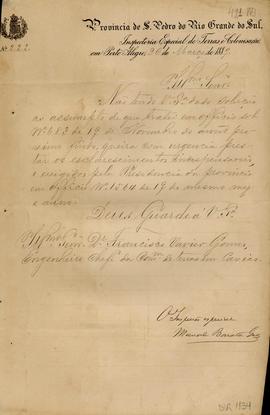 Provincia de S. Pedro do Rio Grande do Sul.
Inspetoria Especial de Terras e Colonisação
em Porto Alegre, 26 de Março de 188
Nº 222
Illmo Senr
Não tendo V. Sª dado solução
ao assumpto de que tratei em officio sob
Nº 683 de 19 de Novembro do anno proximo
findo, queira com urgencia pres-
tar os esclarecimentos indispensaveis
e exigidos pela Presidencia da provincia
em officio Nº 1564 de 19 do mesmo mez
e anno.
Deus Guarde a V. Sª
Senr Dr Francisco Xavier Gomes
Engenheiro Chefe da Comm de terras em Caxias
O Inspector especial
Manoel